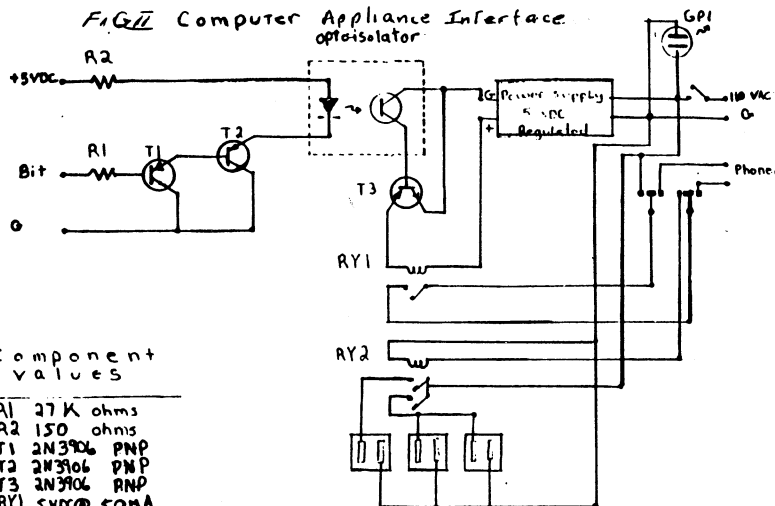 FIG II Computer Appliance Interface
optoisolator
GP1
R2
+5VDC
G Power Supply
5 VDC
+ Regulated
110 VAC
G
R1
T1
T2
Bit
T3
Phone
G
RY1
RY2
Component
Values
R1 27K ohms
R2 150 ohms
T1 2N3906 PNP
T2 2N3906 PNP
T3 2N3906 PNP
RY1 5VDC@ 50MA